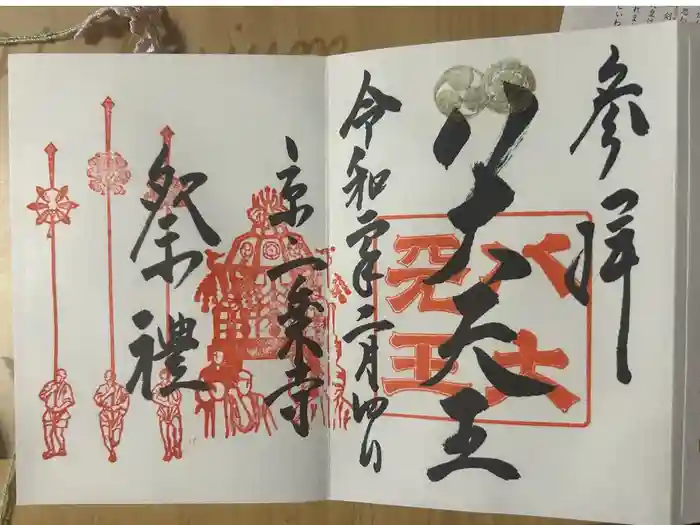 參拜
八大天王
八大
天王
令和二年二月四日
京一乗寺
祭禮